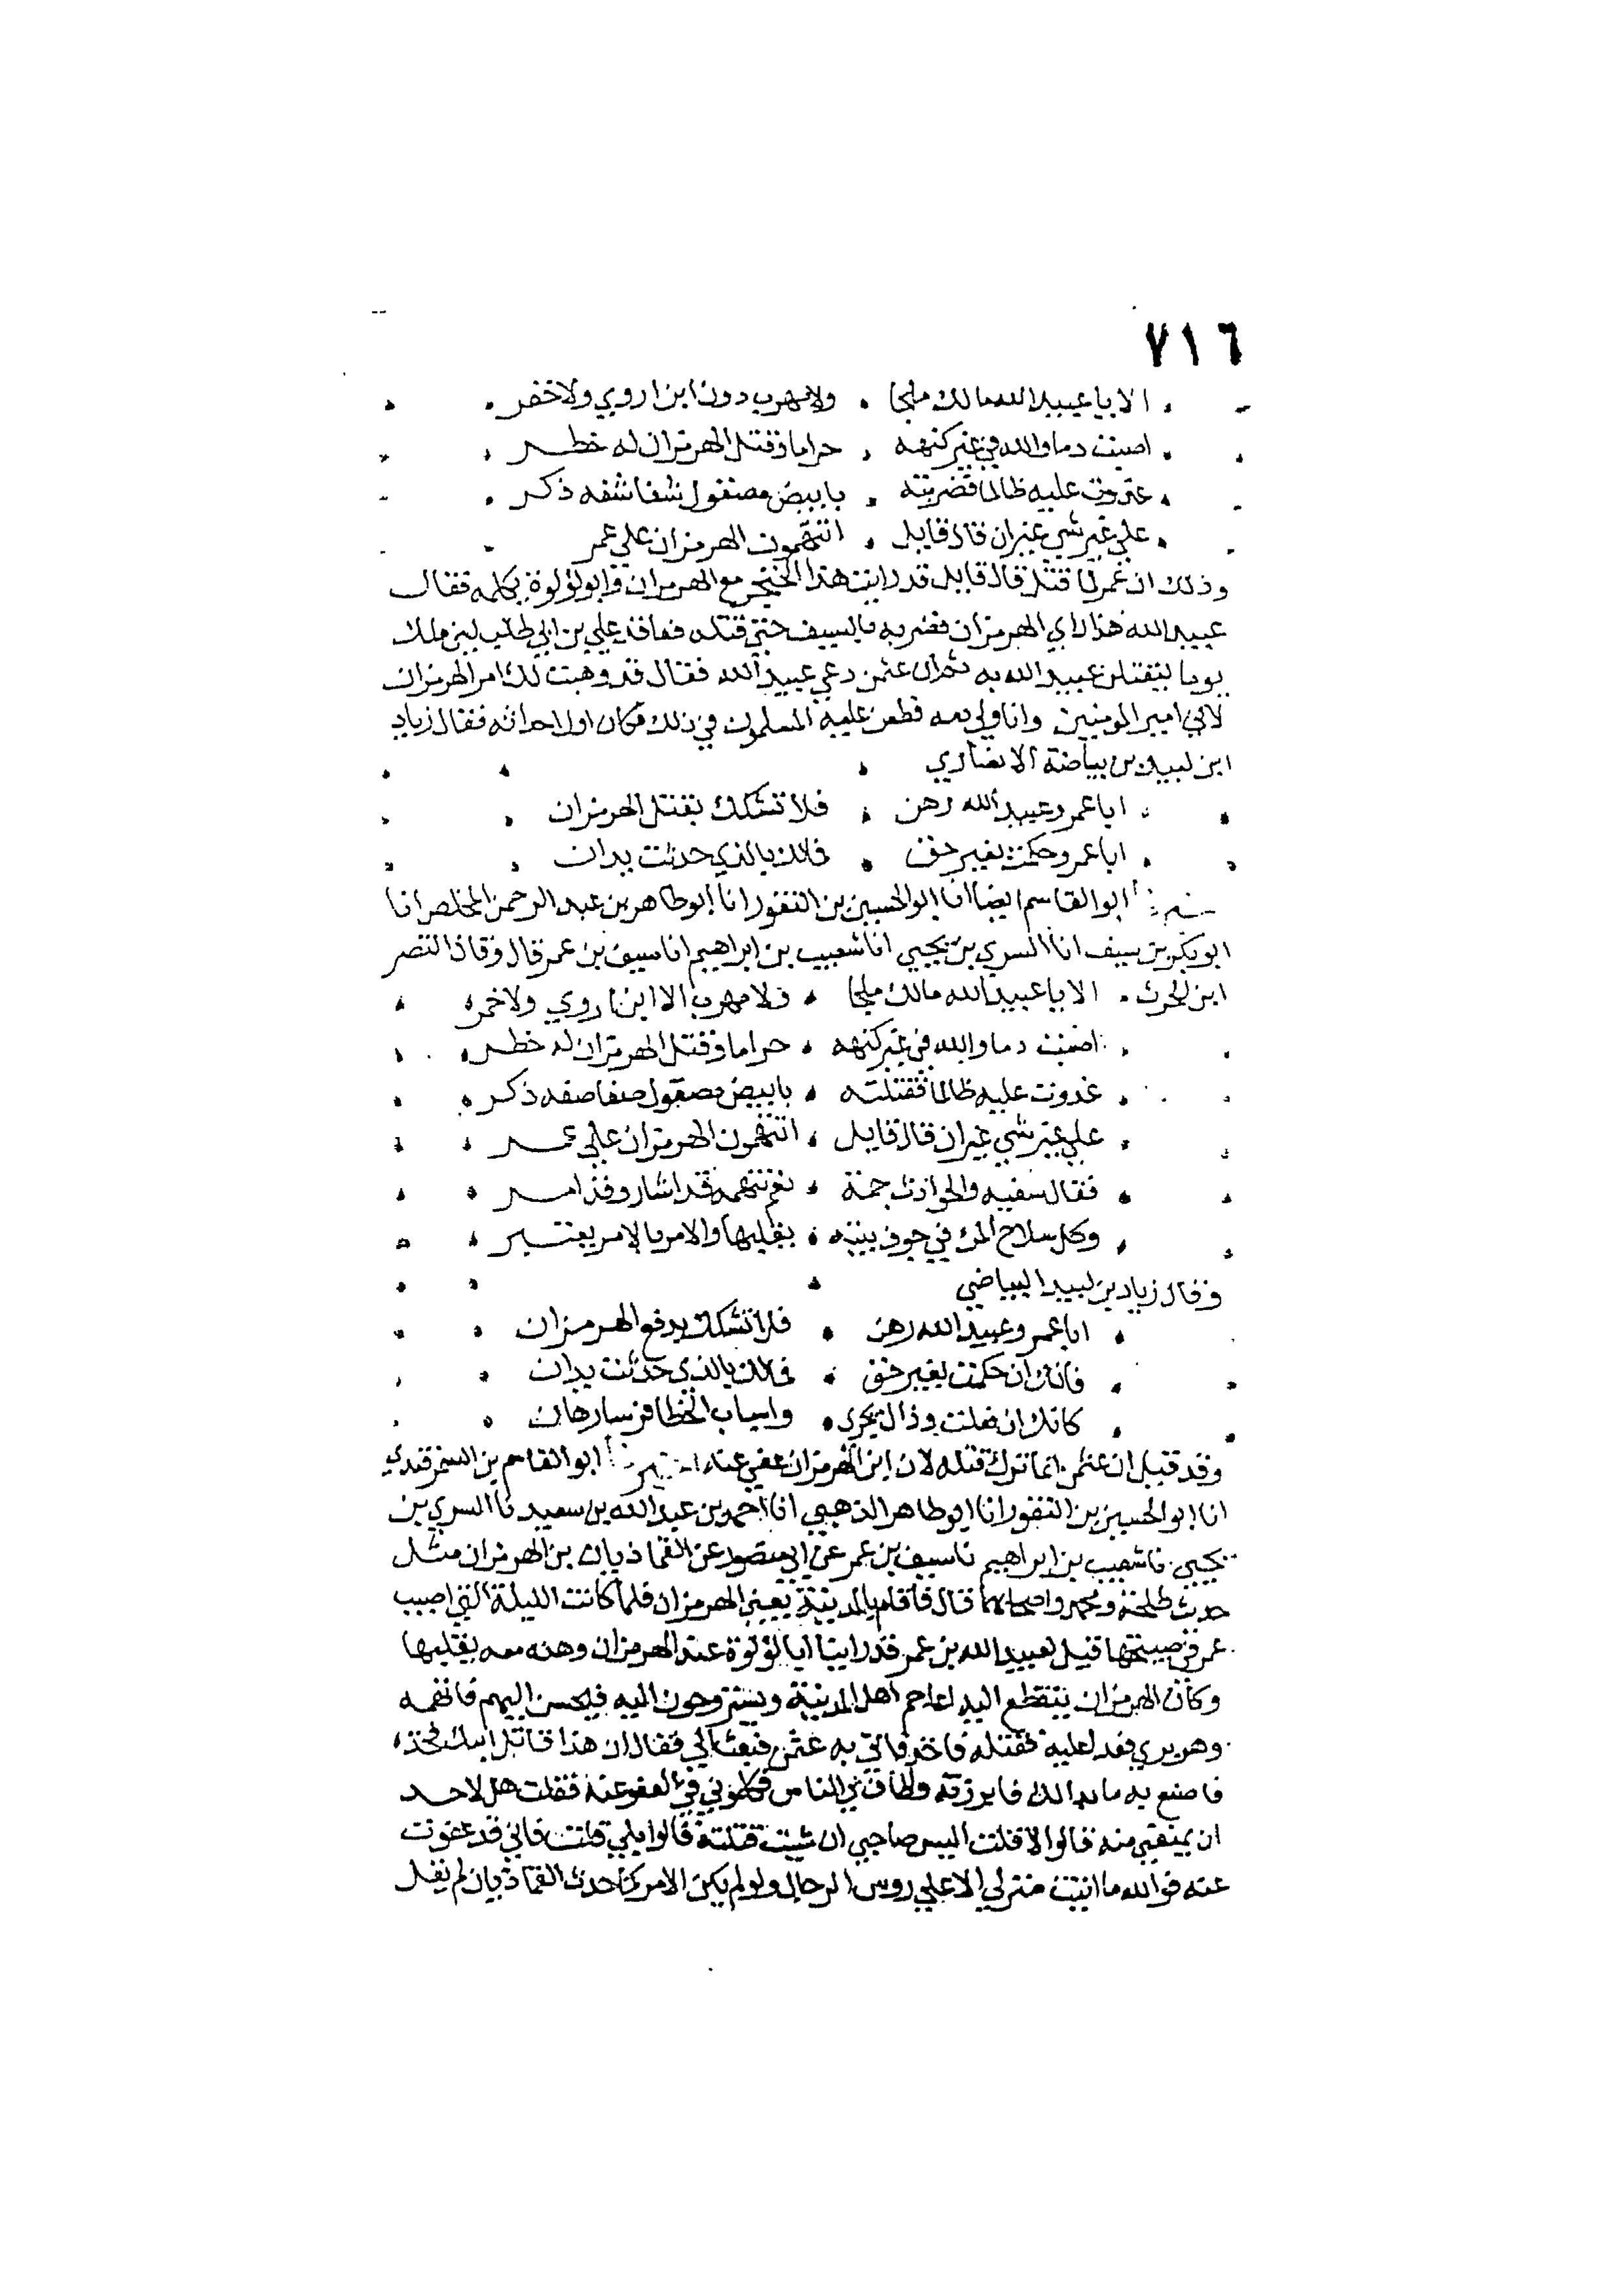 ٧١٦
الا يا عبيد الله مالك ملجا . ولا مهرب دون ابن اروي ولا خفر .
اصبت دما والله في غير كنهه . حراما وقتل الهرمزان له خطر .
عدوت عليه ظالما فضربته . بابيض مصقول شفا شفه ذكر .
علي غير شي غير ان قال قايل . اتتهمون الهرمزان علي عمر
وذلك ان عمر لما قتل قال قايل قد رايت هذا الخنجر مع الهرمزان وابو لولوة يكلمه فقال
عبيد الله هذا راي الهرمزان فضربه بالسيف حتي قتله علي بن ابي طالب لين ملك
يوما ليقتلن عبيد الله به ثم ان عثمن دعي عبيد الله فقال قد وهبت لك امر الهرمزان
لاني امير المومنين وانا ولي دمه فطعن عليه المسلمون في ذلك فكان اول احداثه فقال زياد
ابن لبيد بن بياضة الانصاري
ابا عمرو عبيد الله رهن . فلا تشكك بقتل الهرمزان
ابا عمرو حكمت بغير حق . فمالك بالذي حدثت يدان
ابو القاسم ايضا انا ابو الحسين بن النقور انا ابو طاهر بن عبد الرحمن المخلص انا
ابو بكر بن سيف انا السري بن يحيي انا شعيب بن ابراهيم انا سيف بن عمر قال وقال النضر
ابن الحرث . الا يا عبيد الله مالك ملجا . ولا مهرب الا ابن اروي ولا خمر
اصبت دما والله في غير كنهه . حراما وقتل الهرمزان له خطر .
غدوت عليه ظالما فقتلته . بابيض مصقول صفا صفه ذكر .
علي غير شي غير ان قال قايل . اتتهمون الهرمزان علي عمر
فقال سفيه والحوادث جمة . نعم نتهمه قد اشار وقد امر
وكل سلاح المرء في جوف بيته . يقلبها والامر بالامر يعتبر
وقال زياد بن لبيد البياضي
ابا عمرو عبيد الله رهن . فلا تشكك بدفع الهرمزان
فانك ان حكمت بغير حق . فمالك بالذي حدثت يدان
كانك ان فعلت وذاك يجري . واسباب الخطا فرسا رهان
وقد قيل ان عثمن انما ترك قتله لان ابن الهرمزان عفي عنه ابو القاسم بن السمرقندي
انا ابو الحسين بن النقور انا ابو طاهر الذهبي انا احمد بن عبد الله بن سعيد نا السري بن
يحيي نا شعيب بن ابراهيم نا سيف بن عمر عن ابي منصور عن القماذبان بن الهرمزان مثل
حديث طلحة ومحمد واصحابهما قال فاقام بالمدينة يعني الهرمزان فلما كانت الليلة التي اصيب
عمر في صبيحتها قيل لعبيد الله بن عمر قد راينا ابا لولوة عند الهرمزان وهذه معه يقلبها
وكان الهرمزان ينقطع اليه اعاجم اهل المدينة ويستروحون اليه فيحسن اليهم فاتهمه
وهو بري فعدا عليه فقتله فاخذ فاتي به عثمن فبعث الي فقال ان هذا قاتل ابيك فخذه
فاصنع به ما بدا لك فابرزته واطاف بي الناس فكلموني في العفو عنه فقلت هل لاحد
ان يمنعني منه قالوا لا قلت اليس صاحبي ان شيت قتلته قالوا بلي قلت فاني قد عفوت
عنه فوالله ما اتيت منزلي الا علي روس الرجال ولو لم يكن الامر كما حدث القماذبان لم يقل